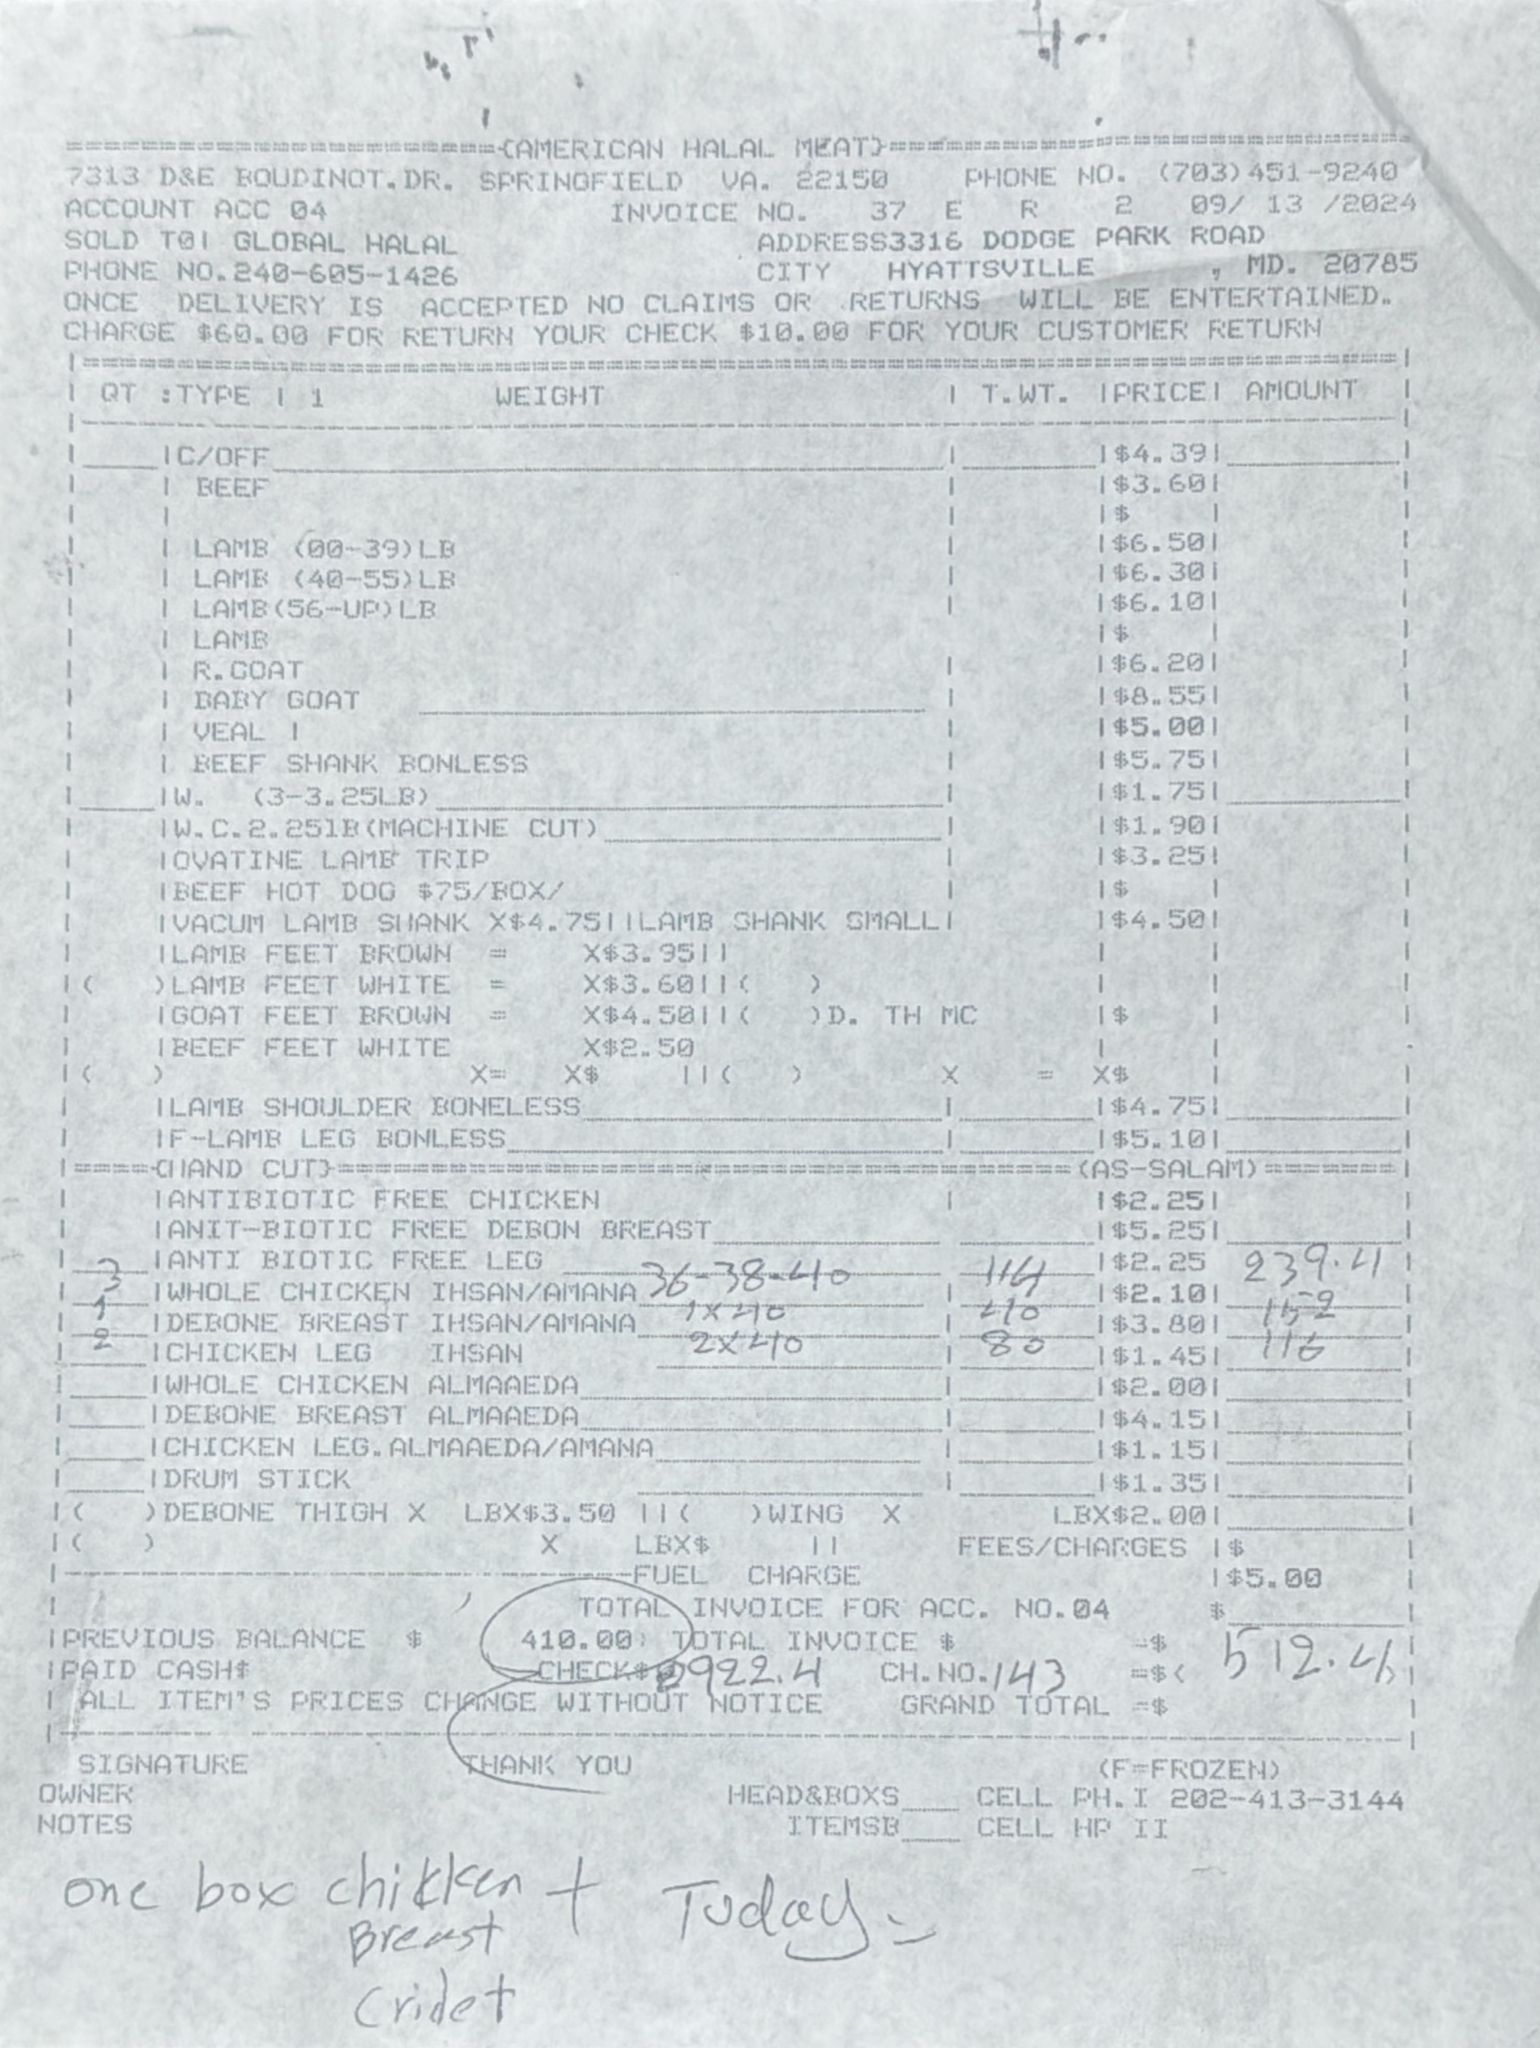 ========================{AMERICAN HALAL MEAT}=============================
7313 D&E BOUDINOT.DR. SPRINGFIELD VA. 22150 PHONE NO. (703)451-9240
ACCOUNT ACC 04 INVOICE NO. 37 E R 2 09/ 13 /2024
SOLD TO| GLOBAL HALAL ADDRESS3316 DODGE PARK ROAD
PHONE NO.240-605-1426 CITY HYATTSVILLE , MD. 20785
ONCE DELIVERY IS ACCEPTED NO CLAIMS OR RETURNS WILL BE ENTERTAINED.
CHARGE $60.00 FOR RETURN YOUR CHECK $10.00 FOR YOUR CUSTOMER RETURN
QT :TYPE | 1 WEIGHT | T.WT. |PRICE| AMOUNT |
|C/OFF |$4.39|
| BEEF |$3.60|
|$ |
| LAMB (00-39)LB |$6.50|
| LAMB (40-55)LB |$6.30|
| LAMB(56-UP)LB |$6.10|
| LAMB |$ |
| R.GOAT |$6.20|
| BABY GOAT |$8.55|
| VEAL | |$5.00|
| BEEF SHANK BONLESS |$5.75|
|W. (3-3.25LB) |$1.75|
|W.C.2.25lB(MACHINE CUT) |$1.90|
|OVATINE LAMB TRIP |$3.25|
|BEEF HOT DOG $75/BOX/ |$ |
|VACUM LAMB SHANK X$4.75||LAMB SHANK SMALL| |$4.50|
|LAMB FEET BROWN = X$3.95||
|( )LAMB FEET WHITE = X$3.60||( )
|GOAT FEET BROWN = X$4.50||( )D. TH MC |$ |
|BEEF FEET WHITE X$2.50
|( ) X= X$ ||( ) X = X$ |
|LAMB SHOULDER BONELESS |$4.75|
|F-LAMB LEG BONLESS |$5.10|
|====={HAND CUT}=======================================(AS-SALAM)=======|
|ANTIBIOTIC FREE CHICKEN |$2.25|
|ANIT-BIOTIC FREE DEBON BREAST |$5.25|
|ANTI BIOTIC FREE LEG |$2.25
3 |WHOLE CHICKEN IHSAN/AMANA 36-38-40 114 |$2.10| 239.4
1 |DEBONE BREAST IHSAN/AMANA 1x40 40 |$3.80| 152
2 |CHICKEN LEG IHSAN 2x40 80 |$1.45| 116
|WHOLE CHICKEN ALMAAEDA |$2.00|
|DEBONE BREAST ALMAAEDA |$4.15|
|CHICKEN LEG.ALMAAEDA/AMANA |$1.15|
|DRUM STICK |$1.35|
|( )DEBONE THIGH X LBX$3.50 ||( )WING X LBX$2.00|
|( ) X LBX$ || FEES/CHARGES |$
FUEL CHARGE |$5.00
TOTAL INVOICE FOR ACC. NO.04 $
|PREVIOUS BALANCE $ 410.00 TOTAL INVOICE $ =$ 512.4
|PAID CASH$ CHECK$ 922.4 CH.NO.143 =$( )
| ALL ITEM'S PRICES CHANGE WITHOUT NOTICE GRAND TOTAL =$
SIGNATURE THANK YOU (F=FROZEN)
OWNER HEAD&BOXS____ CELL PH.I 202-413-3144
NOTES ITEMSB____ CELL HP II
one box chikken + Today
Breast
Cridet